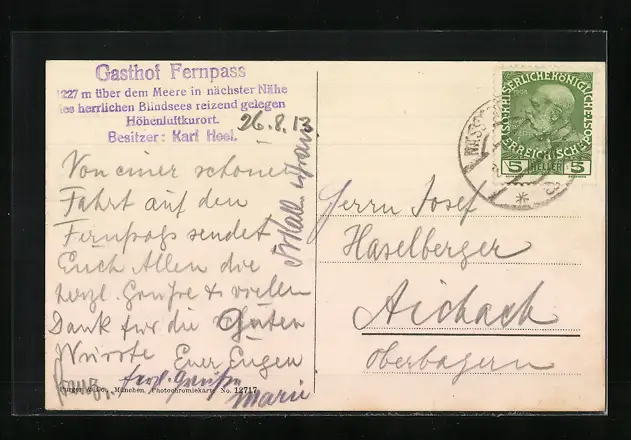 Gasthof Fernpass
1227 m über dem Meere in nächster Nähe
des herrlichen Blindsees reizend gelegen
Höhenluftkurort.
Besitzer: Karl Heel.
26.8.13.
Von einer schönen
Fahrt auf den
Fernpass sendet
Euch Allen die
herzl. Grüsse & vielen
Dank für die Guten
Würste Euer Eugen
Marie
Purger & Co., München, Photochromiekarte No. 12717
KAISERLICHE KÖNIGLICHE ÖSTERREICHISCHE POST
5 HELLER 5
Herrn Josef
Haselberger
Aichach
Oberbayern